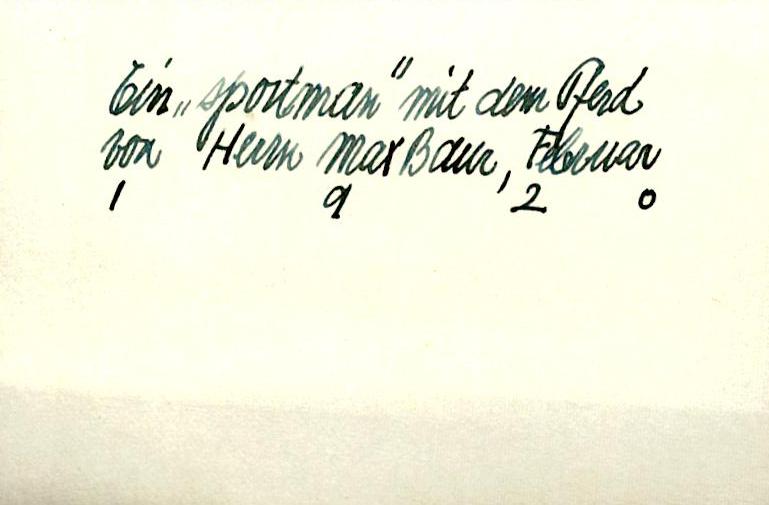 Ein „sportman" mit dem Pferd
von Herrn Max Baur, Februar
1 9 2 0